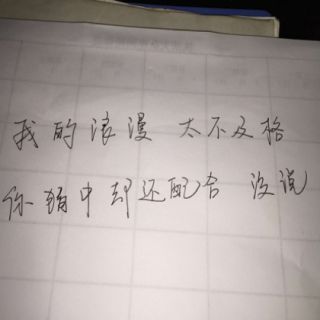 我的浪漫 太不及格
你猜中却还配合 没说